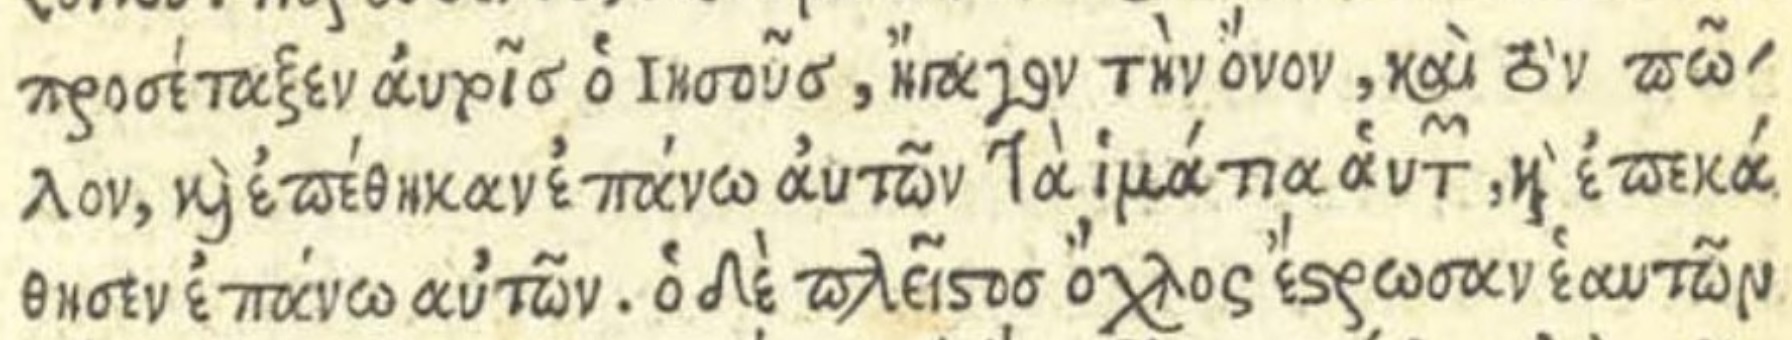 προσέταξεν ἀυτοῖσ ὁ Ιησοῦσ, ἤγαγον τὴν ὄνον, καὶ τὸν πῶ
λον, κỳ ἐπέθηκαν ἐπάνω ἀυτῶν τὰ ἱμάτια ἁυτ͂, κỳ ἐπεκά
θησεν ἐπάνω αὐτῶν. ὁ δὲ πλεῖστοσ ὄχλος ἔστρωσαν ἑαυτῶν